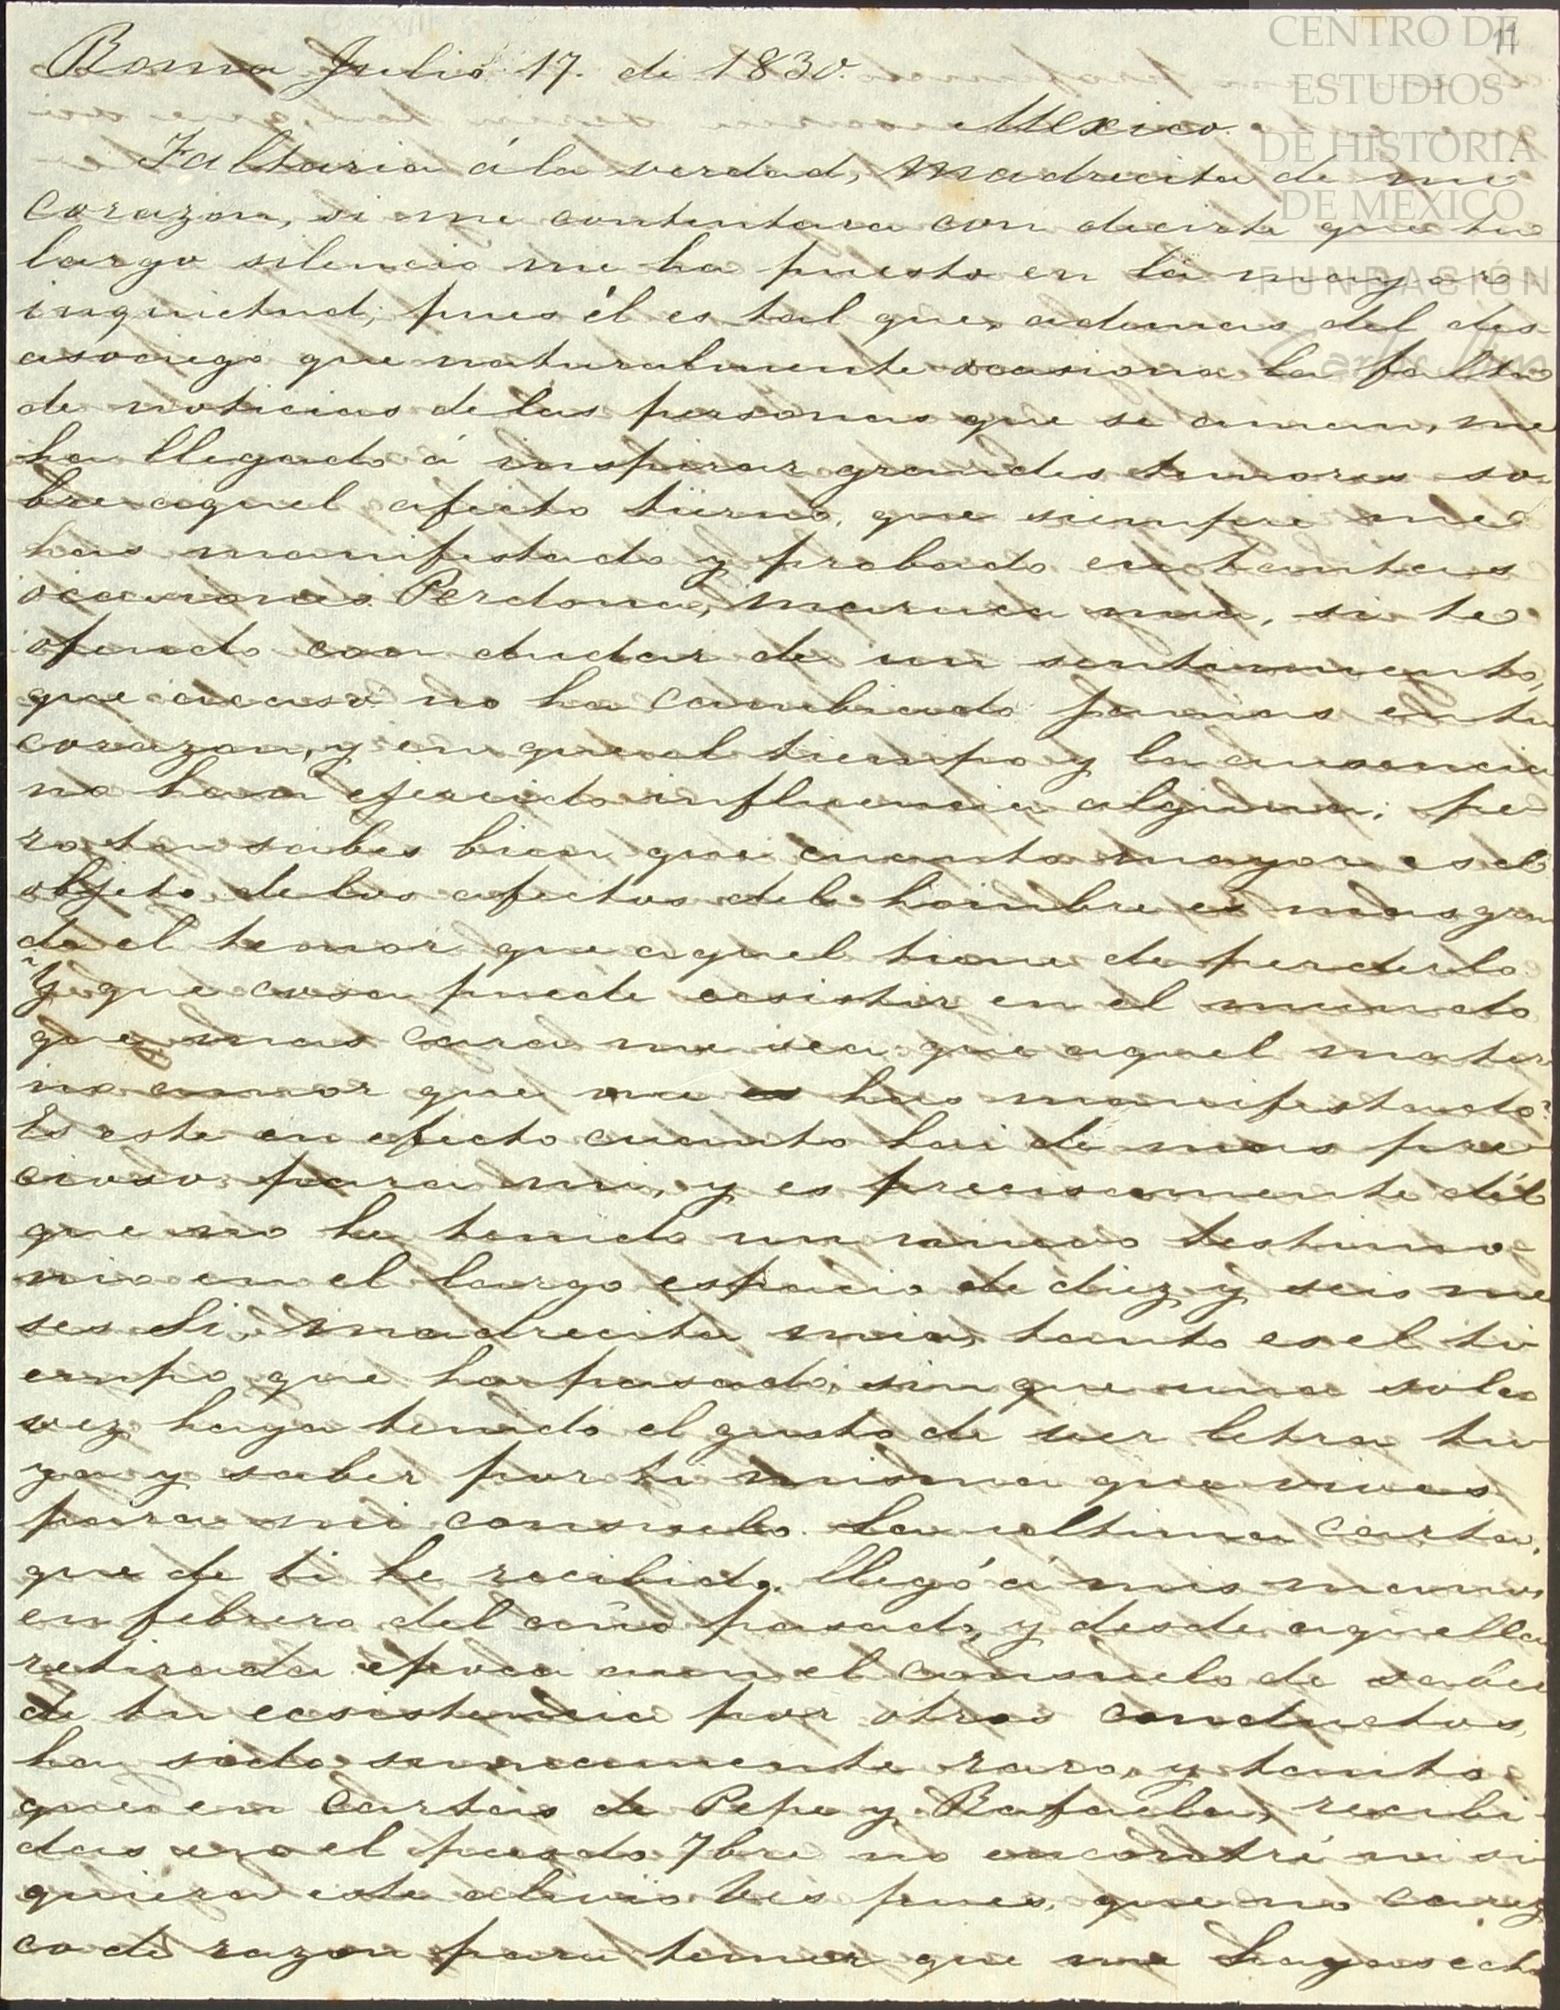 11
CENTRO DE
ESTUDIOS
DE HISTORIA
DE MEXICO
FUNDACIÓN
Carlos Slim
Roma Julio 17. de 1830.
Mexico.
Faltaria á la verdad, Madrecita de mi
corazon, si me contentara con decirte que tu
largo silencio me ha puesto en la mayor
inquietud; pues él es tal que, ademas del des
asosiego que naturalmente ocasiona la falta
de noticias de las personas que se aman, me
ha llegado á inspirar grandes temores so-
bre aquel afecto tierno, que siempre me
has manifestado y probado en tantas
ocasiones. Perdona, maruca mia, si te
ofendo con dudar de un sentimiento,
que acaso no ha cambiado jamas en tu
corazon, y en que el tiempo y la ausencia
no han ejercido influencia alguna; pe-
ro tu sabes bien que cuanto mayor es el
objeto de los afectos del hombre es mas gran
de el temor que aquel tiene de perderlo
Y que cosa puede ecsistir en el mundo
que mas cara me sea que aquel mater
no amor que me has manifestado?
Es este en efecto cuanto hai de mas pre
cioso para mi, y es precisamente dél
que no he tenido un unico testimo-
nio en el largo espacio de diez y seis me
ses Si, madrecita mia, tanto es el ti
empo que ha pasado, sin que una sola
vez haya tenido el gusto de ver letra tu
ya y saber por ti misma que vives
para mi consuelo. La ultima carta,
que de ti he recibido. llegó á mis manos
en febrero del año pasado, y desde aquella
retirada época aun el consuelo de saber
de tu ecsistencia por otros conductos,
ha sido sumamente raro, y tanto
que en cartas de Pepe y Rafaela, recibi-
das en el pasado 7bre no encontré ni si
quiera este alivio. Ves pues, que no carez
co de razon para temer que me hayas echa